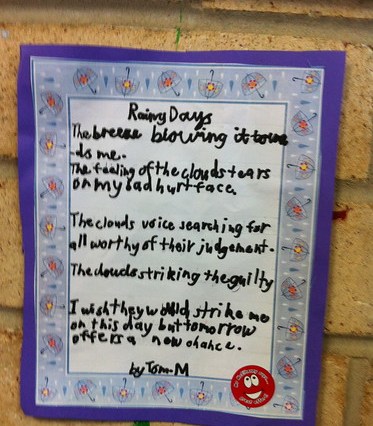 Rainy Days
The breeze blowing it towar
-ds me.
The feeling of the clouds tears
on my sad hurt face.
The clouds voice searching for
all worthy of their judgement.
The clouds striking the guilty
I wish they would strike me
on this day but tomorrow
offers a new chance.
by Tom-M